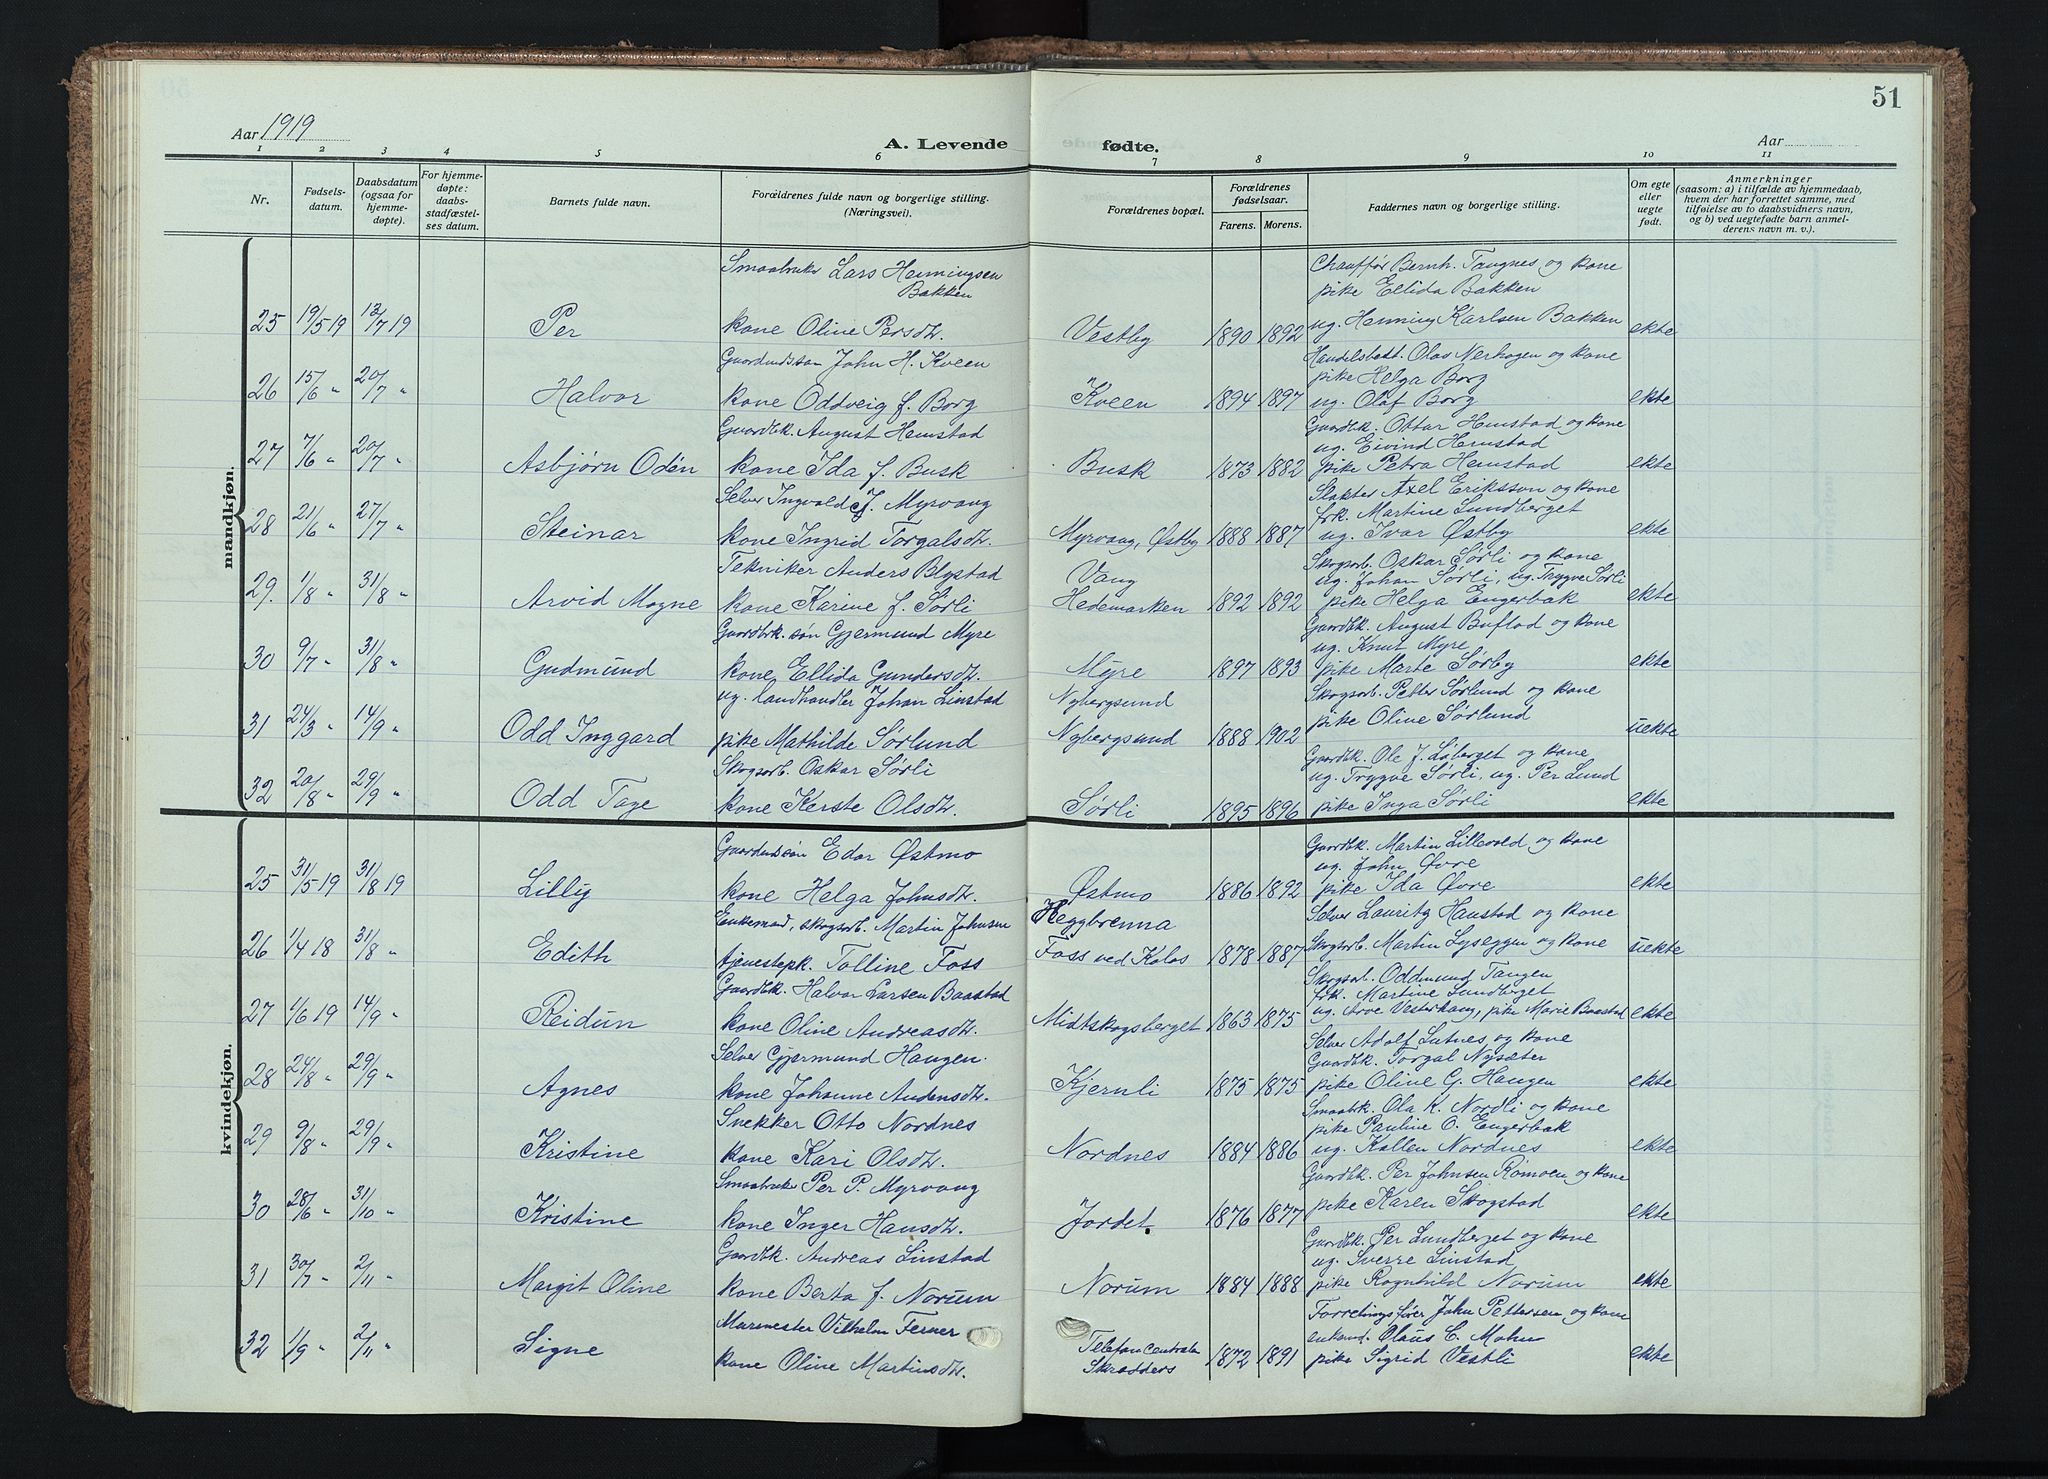 51
Aar 1919
A. Levende
fødte.
Aar
1 2 3 4 5 6 7 8 9 10 11
Nr.
Fødselsdatum.
Daabsdatum (ogsaa for hjemmedøpte).
For hjemmedøpte: daabsstadfæstelses datum.
Barnets fulde navn.
Forældrenes fulde navn og borgerlige stilling. (Næringsvei).
Forældrenes bopæl.
Forældrenes fødselsaar.
Farens. Morens.
Faddernes navn og borgerlige stilling.
Om egte eller uegte født.
Anmerkninger
(saasom: a) i tilfælde av hjemmedaab,
hvem der har forrettet samme, med
tilføielse av to daabsvidners navn,
og b) ved uegtefødte barn anmelderens navn m. v.).
mandkjøn.
Smaabruker Lars Henningsen Chauffør Bernh. Tangnes og kone
Bakken pike Ellida Bakken
25 19/5 19 13/7 19 Per kone Oline Persdtr. Vestby 1890 1892 ug. Henning Karlsen Bakken ekte
Gaardmdssøn John H. Kveen Handelsbest. Olas Nerhagen og kone
pike Helga Borg
26 15/6 " 20/7 " Halvor kone Oddveig f. Borg Kveen 1894 1897 ug. Olaf Borg ekte
Gaardbk. August Hemstad Gaardbk. Ottar Hemstad og kone
ug. Eivind Hemstad
27 7/6 " 20/7 " Asbjørn Odén kone Ida f. Busk Busk 1873 1882 pike Petra Hemstad ekte
Selver Ingvald J. Myrvang Slakter Axel Eriksson og kone
frk. Martine Lundberget
28 21/6 " 27/7 " Steinar kone Ingrid Torgalsdtr. Myrvang, Østby 1888 1887 ug. Ivar Østby ekte
Tekniker Anders Blystad Vang Skogsarb. Oskar Sørli og kone
ug. Johan Sørli, ug. Trygve Sørli
29. 1/8 " 31/8 " Arvid Magne kone Karine f. Sørli Hedemarken 1892 1892 pike Helga Engerbak ekte
Gaardbrk. søn Gjermund Myre Gaardbk. August Buflod og kone
ug. Knut Myre
30 9/7 " 31/8 " Gudmund kone Ellida Gundersdtr. Myre 1897 1893 pike Marte Sørby ekte
ug. landhandler Johan Linstad Nybergsund Skogsarb. Petter Sørlund og kone
31 24/3 " 14/9 " Odd Inggard pike Mathilde Sørlund Nybergsund 1888 1902 pike Oline Sørlund uekte
Skogsarb. Oskar Sørli Gaardbk. Ole J. Løberget og kone
ug. Trygve Sørli, ug. Per Lund
32 20/8 " 29/9 " Odd Tage kone Kerste Olsdtr. Sørli 1895 1896 pike Inga Sørli ekte
kvindekjøn.
Gaardmdssøn Edor Østmo Gaardbk. Martin Lillevold og kone
ug. John Øvre
25 31/5 19 31/8 19 Lilly kone Helga Johnsdtr. Østmo 1886 1892 pike Ida Øvre ekte
Enkemand, skogsarb. Martin Johnsen Heggbrenna Selver Lauritz Haustad og kone
26 1/4 18 31/8 " Edith tjenestepk. Tolline Foss Foss ved Kolos 1878 1887 Skogsarb. Martin Lyseggen og kone uekte
Gaardbk. Halvor Larsen Baastad Skogsarb. Oddmund Tangen
frk. Martine Lundberget
27 1/6 19 14/9 " Reidun kone Oline Andreasdtr. Midtskogsberget 1863 1875 ug. Arve Vesterhaug, pike Marie Baastad ekte
Selver Gjermund Haugen. Selver Adolf Lutnes og kone
Gaardbk. Torgal Nysæter
28 24/8 " 29/9 " Agnes kone Johanne Andersdtr. Kjernli 1875 1875 pike Oline G. Haugen ekte
Snekker Otto Nordnes Smaabrk. Ola K. Nordli og kone
pike Pauline O. Engerbak
29 9/8 " 29/9 " Kristine kone Kari Olsdtr. Nordnes 1884 1886 ug. Kallen Nordnes ekte
Smaabruker Per P. Myrvang Gaardbk. Per Johnsen Römoen og kone
30 28/6 " 31/10 " Kristine kone Inger Hansdtr. Jordet. 1876 1877 pike Karen Skogstad ekte
Gaardbk. Andreas Linstad Gaardbk. Per Lundberget og kone
ug. Sverre Linstad
31 30/7 " 2/11 " Margit Oline kone Berta f. Norum Norum 1884 1888 pike Ragnhild Norum ekte
Murmester Vilhelm Ferner Forretningsfører John Pettersen og kone
Telefoncentralen enkemd. Olaus C. Mohn
32 1/9 " 2/11 " Signe kone Oline Martinsdtr. Skradders 1872 1891 pike Sigrid Vestli ekte